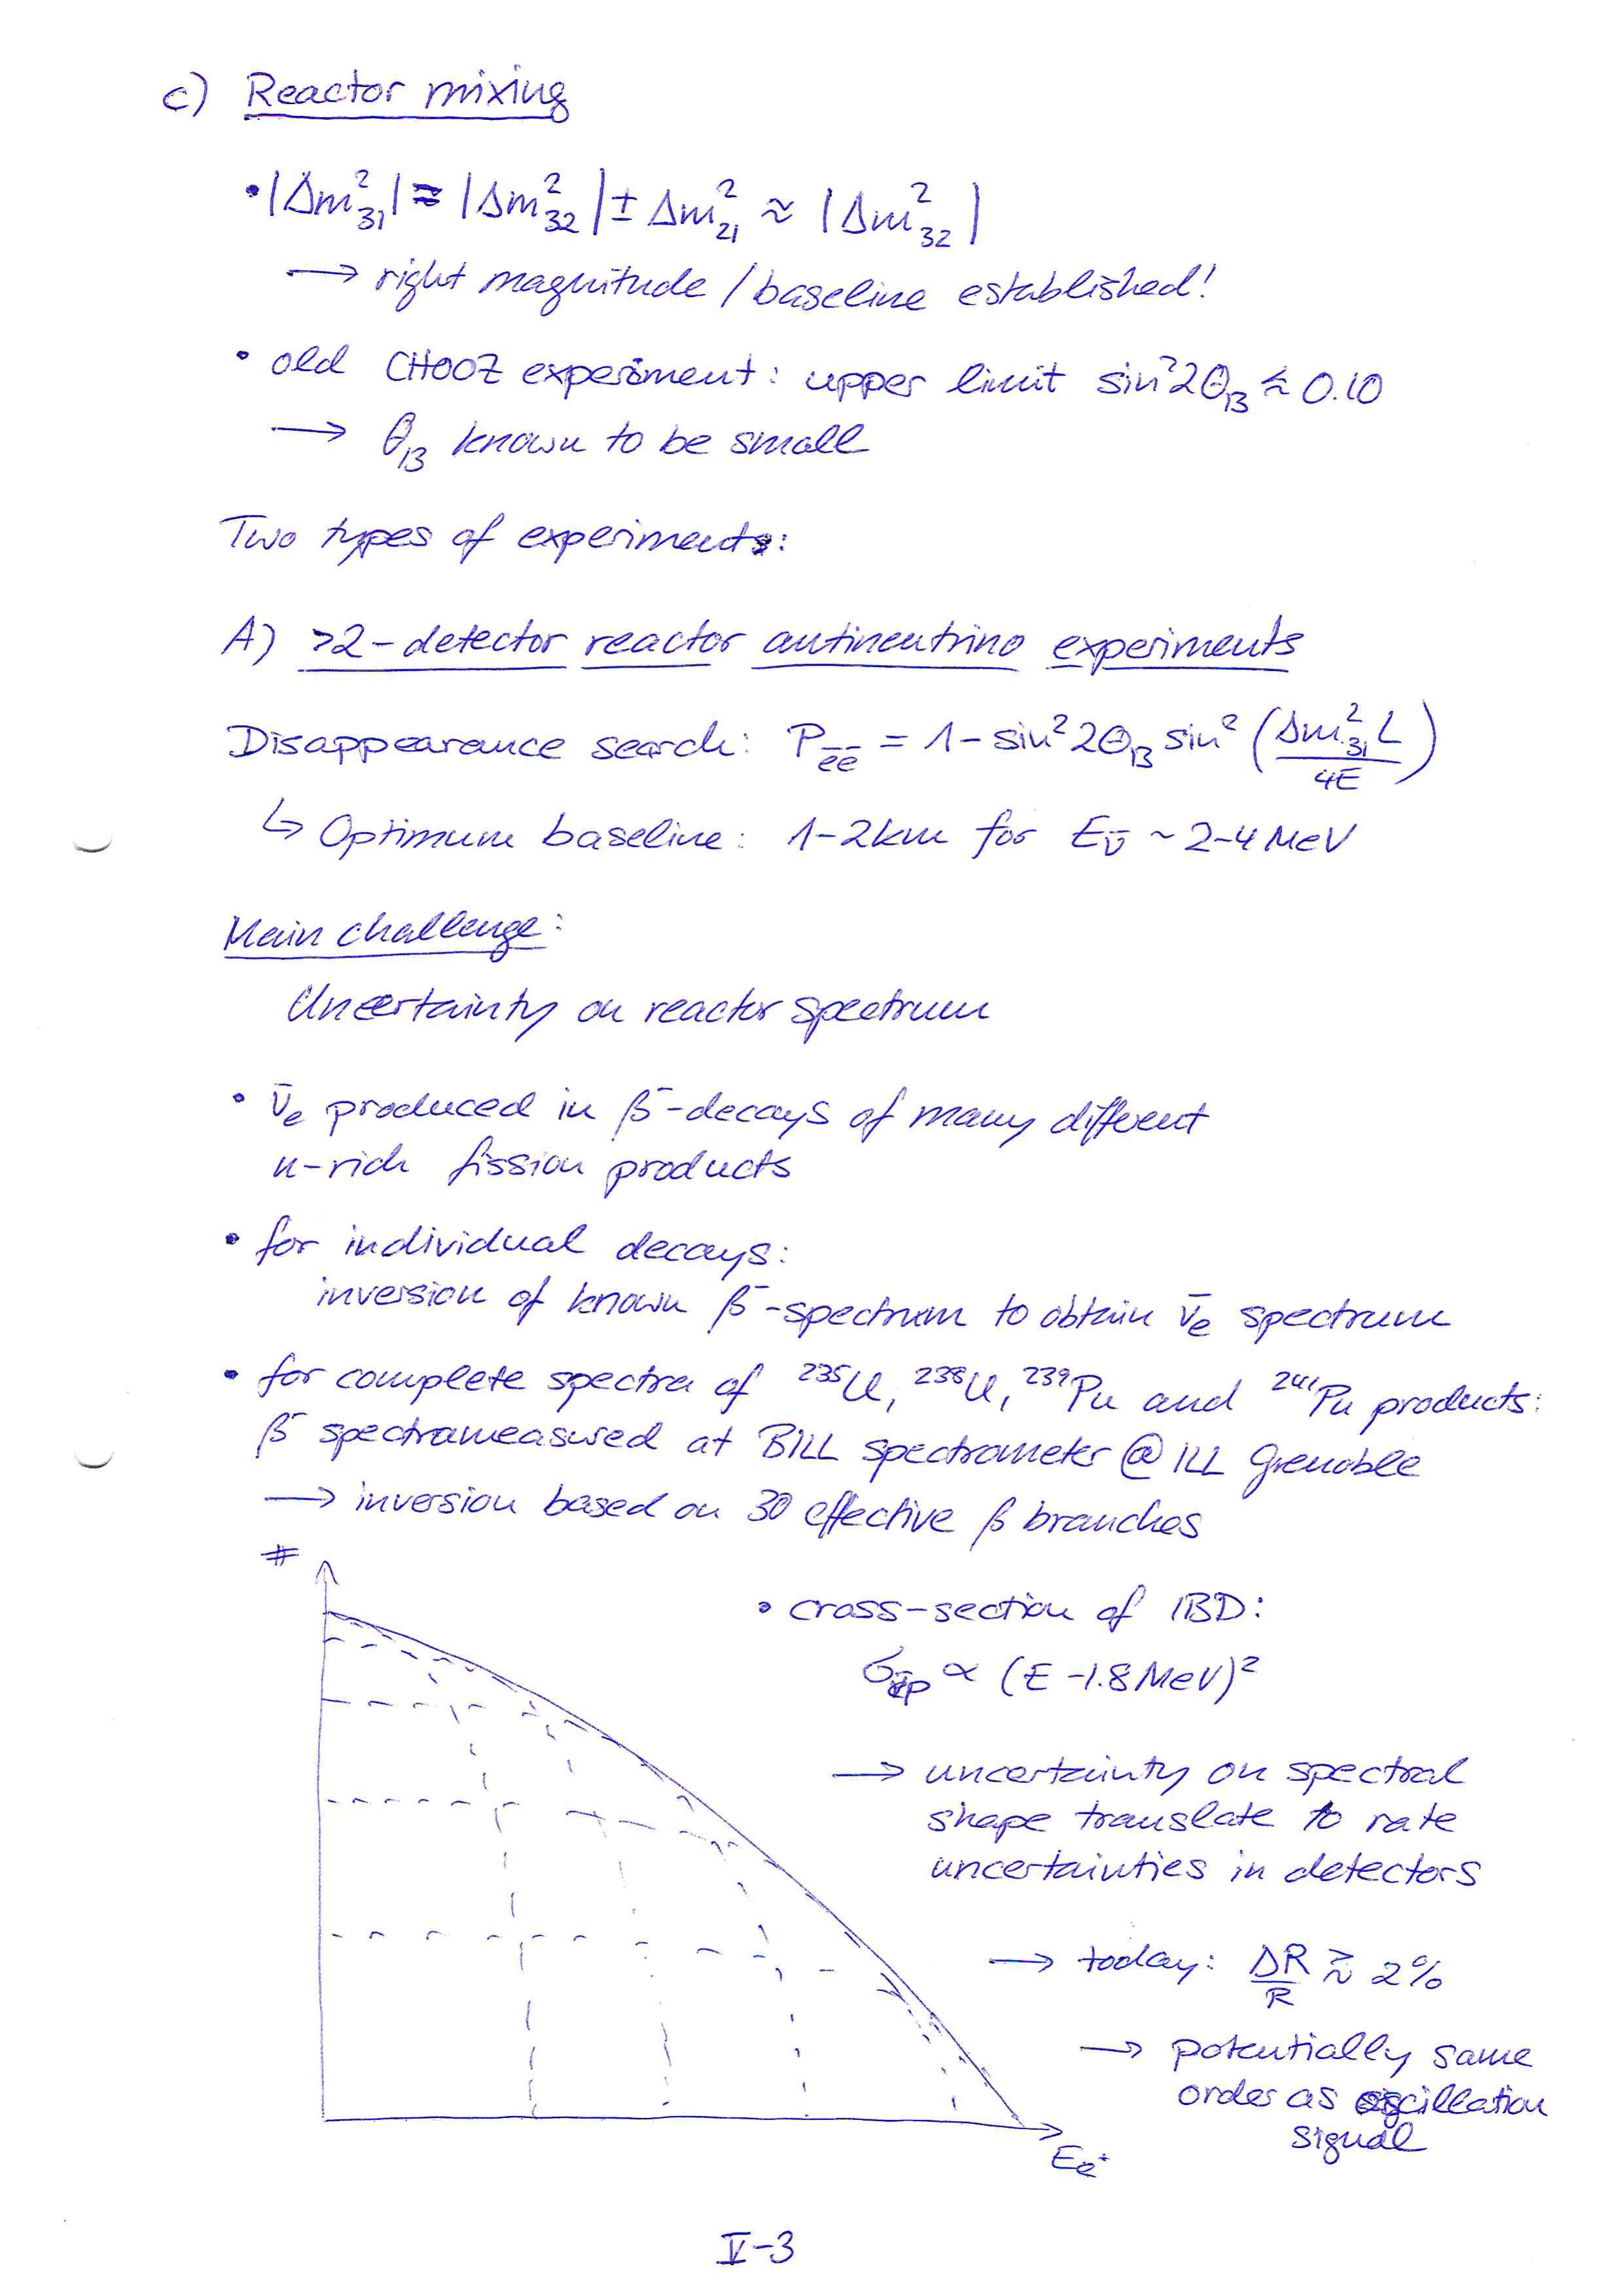 c) Reactor mixing
• |Δm²₃₁| ≈ |Δm²₃₂| ± Δm²₂₁ ≈ |Δm²₃₂|
→ right magnitude / baseline established!
• old CHOOZ experiment: upper limit sin²2θ₁₃ ≲ 0.10
→ θ₁₃ known to be small
Two types of experiments:
A) >2-detector reactor antineutrino experiments
Disappearance search: P_e̅e̅ = 1 - sin²2θ₁₃ sin² (Δm²₃₁L / 4E)
↳ Optimum baseline: 1-2km for E_ν̅ ~ 2-4 MeV
Main challenge:
Uncertainty on reactor spectrum
• ν̅ₑ produced in β⁻-decays of many different
n-rich fission products
• for individual decays:
inversion of known β⁻-spectrum to obtain ν̅ₑ spectrum
• for complete spectra of ²³⁵U, ²³⁸U, ²³⁹Pu and ²⁴¹Pu products:
β⁻ spectra measured at BILL spectrometer @ ILL Grenoble
→ inversion based on 30 effective β branches
#
• cross-section of IBD:
σ_ν̅p ∝ (E - 1.8 MeV)²
→ uncertainty on spectral
shape translate to rate
uncertainties in detectors
→ today: ΔR/R ≳ 2%
→ potentially same
order as oscillation
signal
E_e⁺
V-3